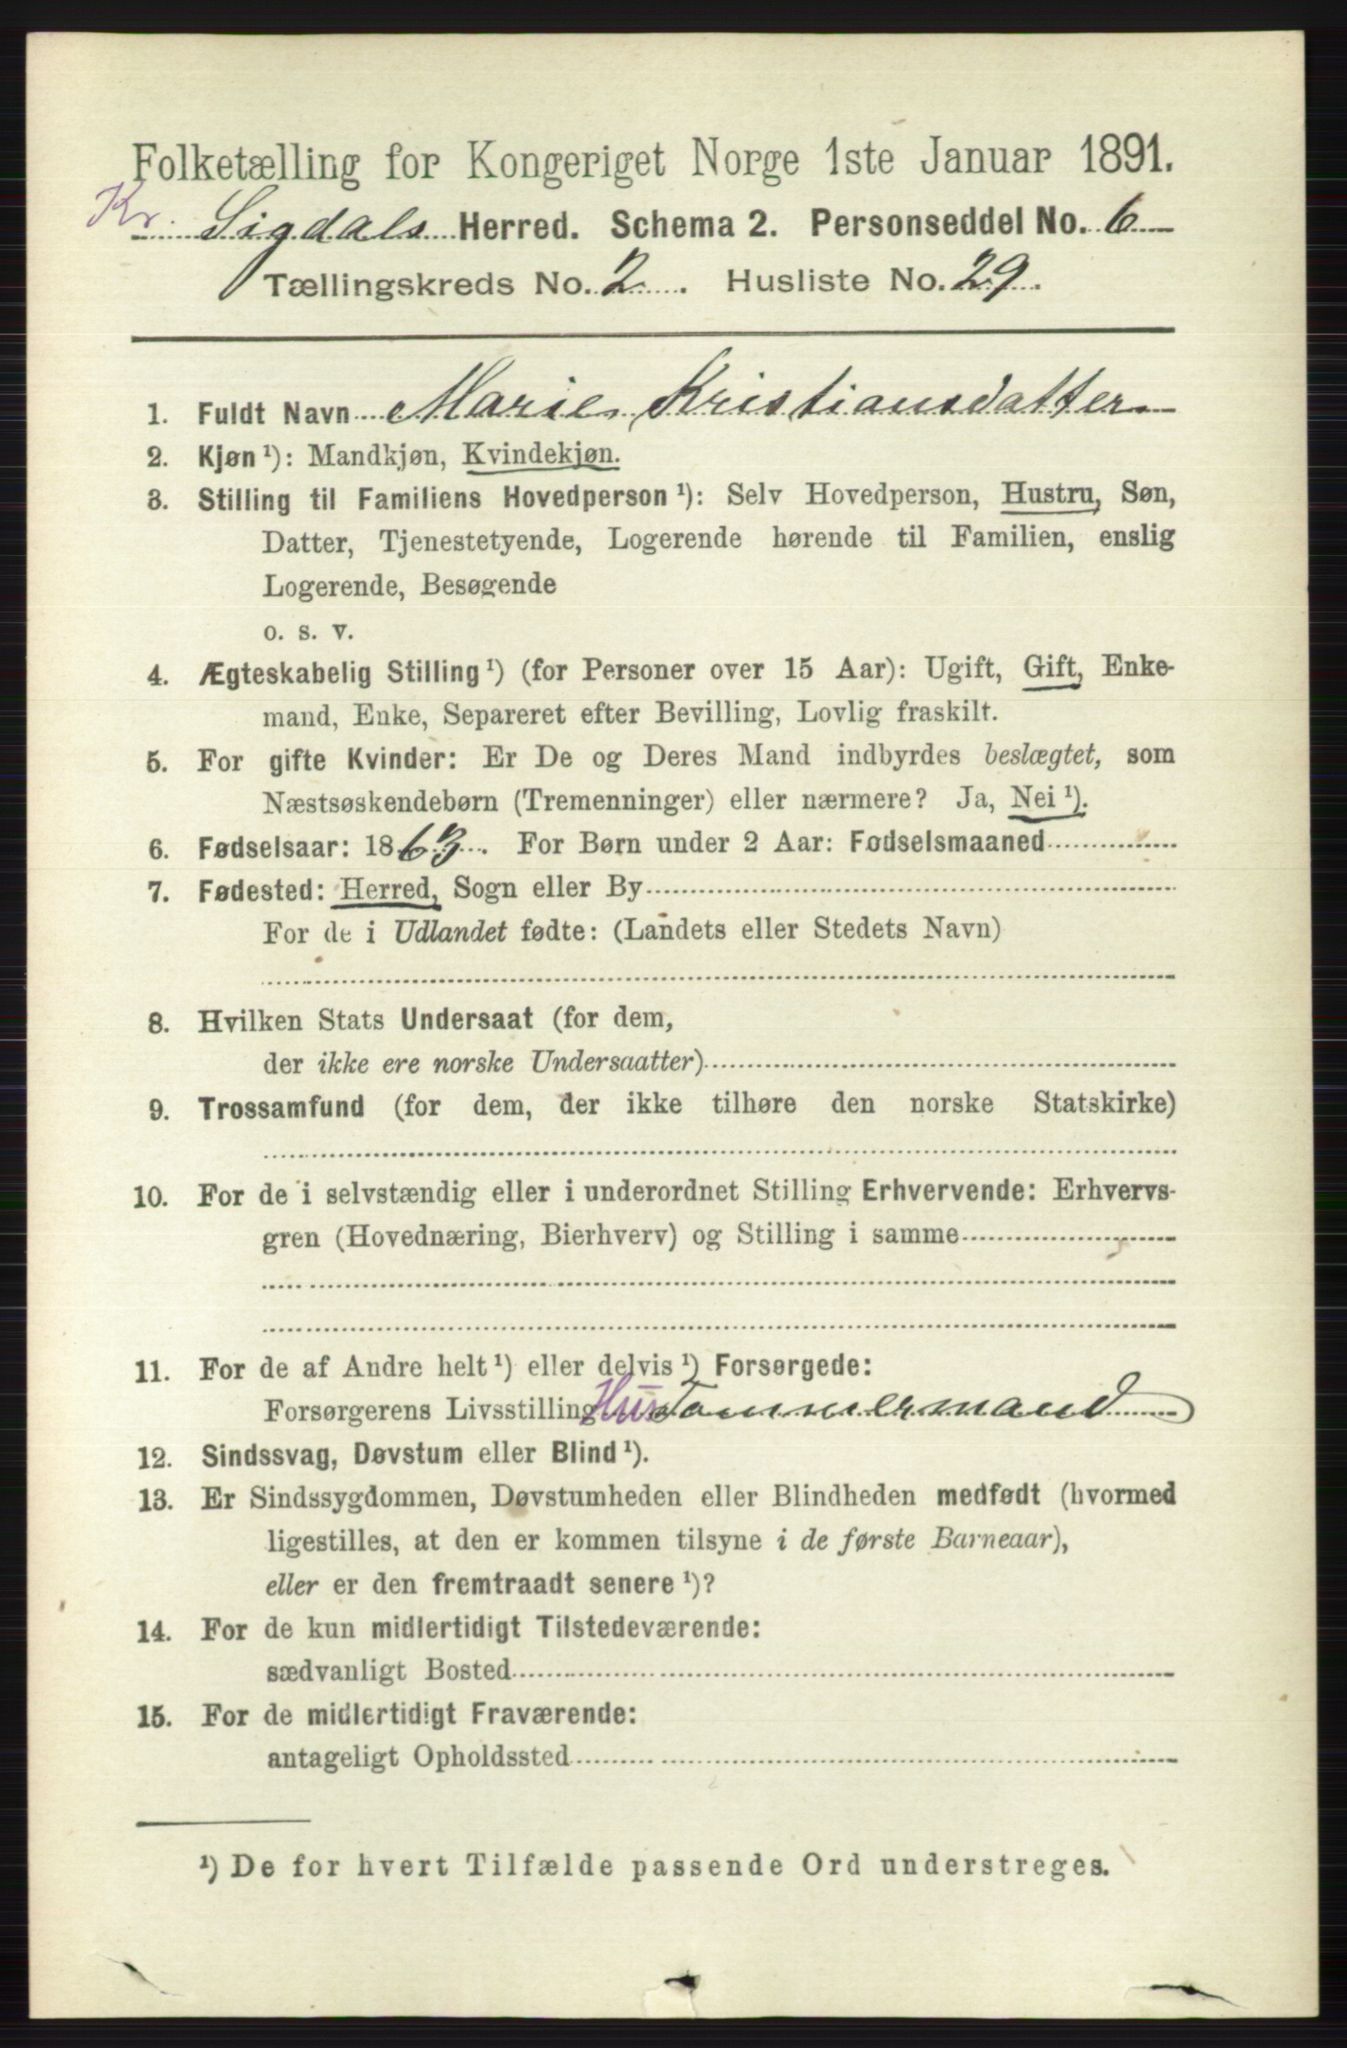 Folketælling for Kongeriget Norge 1ste Januar 1891.
Kr. Sigdals Herred. Schema 2. Personseddel No. 6
Tællingskreds No. 2. Husliste No. 29.
1. Fuldt Navn Marie Kristiansdatter
2. Kjøn ¹): Mandkjøn, Kvindekjøn.
3. Stilling til Familiens Hovedperson ¹): Selv Hovedperson, Hustru, Søn,
Datter, Tjenestetyende, Logerende hørende til Familien, enslig
Logerende, Besøgende
o. s. v.
4. Ægteskabelig Stilling ¹) (for Personer over 15 Aar): Ugift, Gift, Enke-
mand, Enke, Separeret efter Bevilling, Lovlig fraskilt.
5. For gifte Kvinder: Er De og Deres Mand indbyrdes beslægtet, som
Næstsøskendebørn (Tremenninger) eller nærmere? Ja, Nei ¹).
6. Fødselsaar: 1863. For Børn under 2 Aar: Fødselsmaaned
7. Fødested: Herred, Sogn eller By
For de i Udlandet fødte: (Landets eller Stedets Navn)
8. Hvilken Stats Undersaat (for dem,
der ikke ere norske Undersaatter)
9. Trossamfund (for dem, der ikke tilhøre den norske Statskirke)
10. For de i selvstændig eller i underordnet Stilling Erhvervende: Erhvervs-
gren (Hovednæring, Bierhverv) og Stilling i samme
11. For de af Andre helt ¹) eller delvis ¹) Forsørgede:
Forsørgerens Livsstilling Hus Tømmermand
12. Sindssvag, Døvstum eller Blind ¹).
13. Er Sindssygdommen, Døvstumheden eller Blindheden medfødt (hvormed
ligestilles, at den er kommen tilsyne i de første Barneaar),
eller er den fremtraadt senere ¹)?
14. For de kun midlertidigt Tilstedeværende:
sædvanligt Bosted
15. For de midlertidigt Fraværende:
antageligt Opholdssted
¹) De for hvert Tilfælde passende Ord understreges.